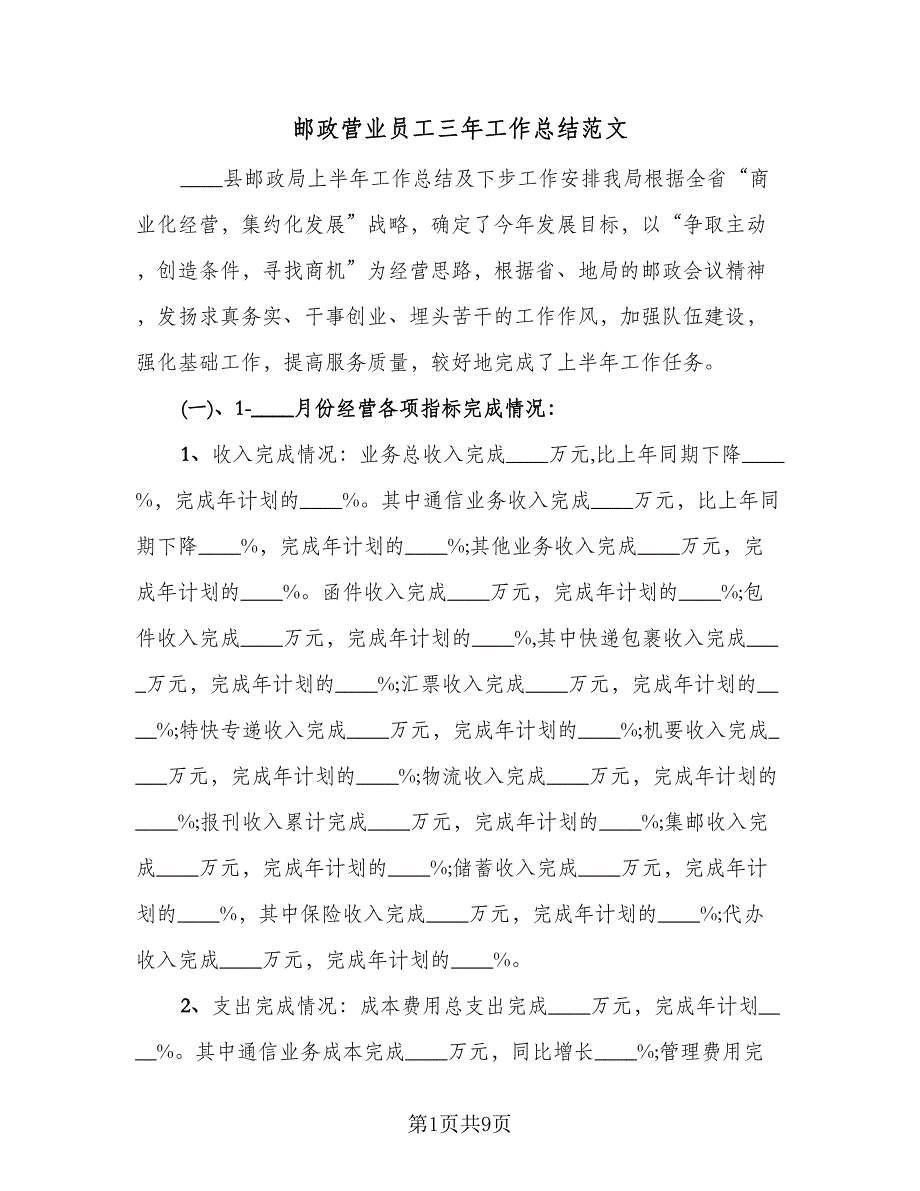 邮政营业员工三年工作总结范文
____县邮政局上半年工作总结及下步工作安排我局根据全省“商
业化经营，集约化发展”战略，确定了今年发展目标，以“争取主动
，创造条件，寻找商机”为经营思路，根据省、地局的邮政会议精神
，发扬求真务实、干事创业、埋头苦干的工作作风，加强队伍建设，
强化基础工作，提高服务质量，较好地完成了上半年工作任务。
(一)、1-____月份经营各项指标完成情况：
1、收入完成情况：业务总收入完成____万元,比上年同期下降____
%，完成年计划的____%。其中通信业务收入完成____万元，比上年同
期下降____%，完成年计划的____%;其他业务收入完成____万元，完
成年计划的____%。函件收入完成____万元，完成年计划的____%;包
件收入完成____万元，完成年计划的____%,其中快递包裹收入完成___
_万元，完成年计划的____%;汇票收入完成____万元，完成年计划的__
__%;特快专递收入完成____万元，完成年计划的____%;机要收入完成_
___万元，完成年计划的____%;物流收入完成____万元，完成年计划的
____%;报刊收入累计完成____万元，完成年计划的____%;集邮收入完
成____万元，完成年计划的____%;储蓄收入完成____万元，完成年计
划的____%，其中保险收入完成____万元，完成年计划的____%;代办
收入完成____万元，完成年计划的____%。
2、支出完成情况：成本费用总支出完成____万元，完成年计划__
__%。其中通信业务成本完成____万元，同比增长____%;管理费用完
第1页共9页